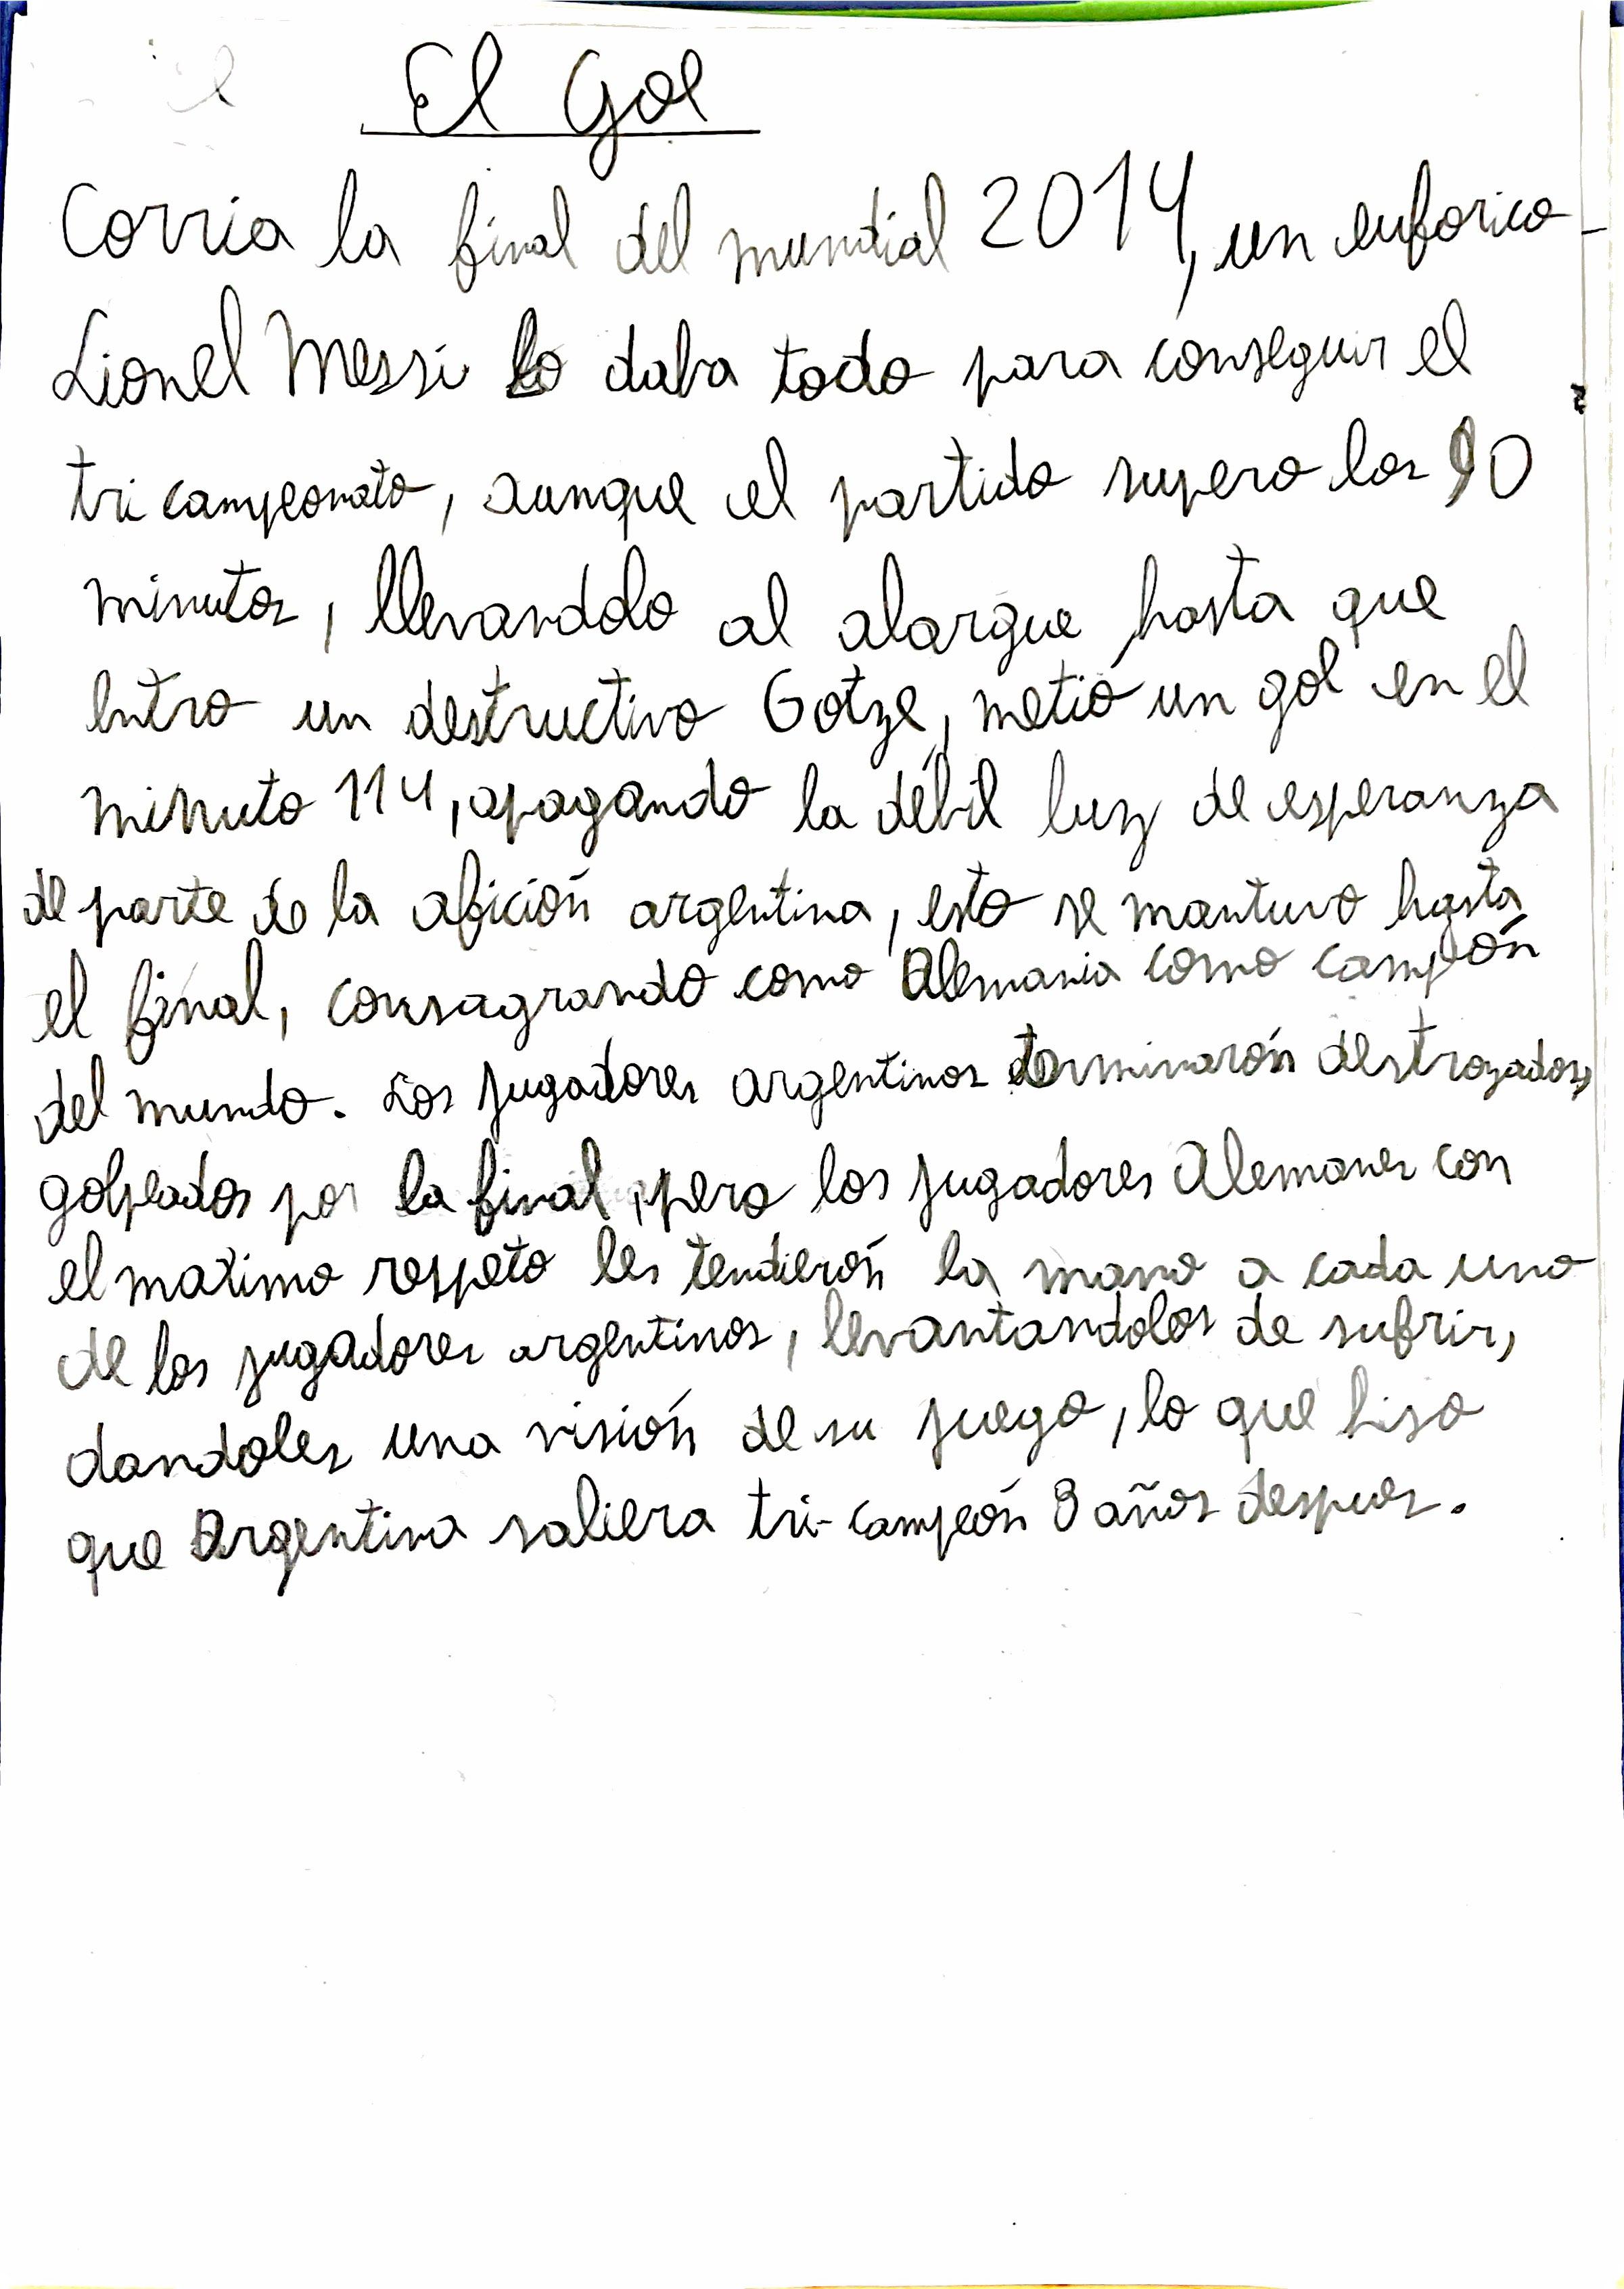 El Gol
Corria la final del mundial 2014, un euforico
Lionel Messi lo daba todo para conseguir el
tri campeonato, aunque el partido supero los 90
minutos, llevanddolo al alargue hasta que
entro un destructivo Gotze, metió un gol en el
minuto 114, apagando la débil luz de esperanza
de parte de la afición argentina, esto se mantuvo hasta
el final, consagrando como Alemania como campeón
del mundo. Los jugadores argentinos terminarón destrozados,
golpeados por la final, pero los jugadores Alemanes con
el maximo respeto les tendierón la mano a cada uno
de los jugadores argentinos, levantandolos de sufrir,
dandoles una visión de su juego, lo que hiso
que Argentina saliera tri-campeón 8 años despues.